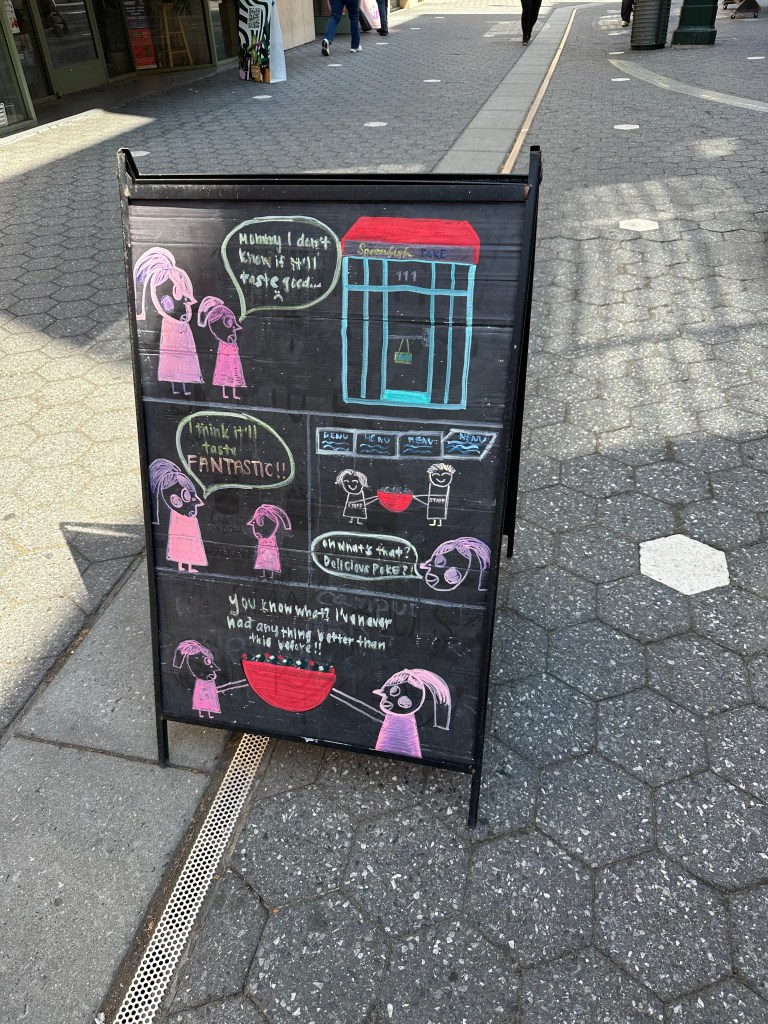 Mommy I don't
know if it'll
taste good...
POKE
I think it'll
taste
FANTASTIC!!
MENU
MENU
MENU
STAFF
oh what's that?
Delicious POKE?!
you know what? I've never
had anything better than
this before!!